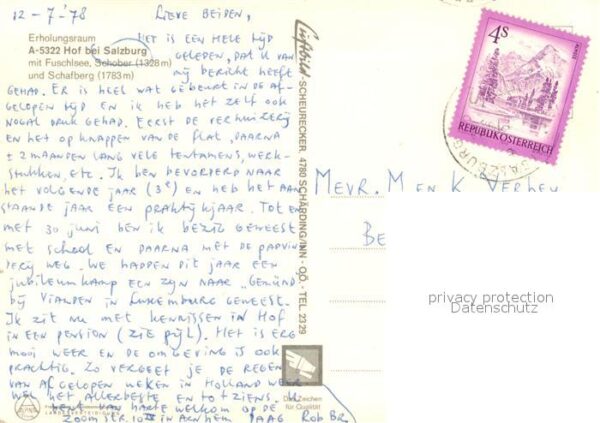 12-7-'78 Lieve Beiden,
Erholungsraum
A-5322 Hof bei Salzburg
mit Fuschlsee, Schober (1328 m)
und Schafberg (1783 m)
Het is een hele tijd
geleden, dat u van
mij bericht heeft
gehad. Er is heel wat gebeurt in de af-
gelopen tijd en ik heb het zelf ook
nogal druk gehad. Eerst de verhuizerij
en het opknappen van de flat, daarna
± 2 maanden lang vele tentamens, werk-
stukken, etc. Ik ben bevorderd naar
het volgende jaar (3e) en heb het aan
staande jaar een praktijkjaar. Tot en
met 30 juni ben ik bezig geweest
met school en daarna met de padvin
derij weg. We hadden dit jaar een
jubileumkamp en zijn naar "Gemünd"
bij Vianden in Luxemburg geweest.
Ik zit nu met kennissen in Hof
in een pension (zie pijl). Het is erg
mooi weer en de omgeving is ook
prachtig. Zo vergeet je de regen
van afgelopen weken in Holland weer
wel het allerbeste en tot ziens. U
bent van harte welkom op de
Zoomstr. in Arnhem. Daag Rob
Luftbild SCHEURECKER, 4780 SCHÄRDING/INN - OÖ - TEL. 2329
4s
REPUBLIK ÖSTERREICH
SALZBURG
Mevr. M en K Verhey
Be
privacy protection
Datenschutz
Das Zeichen
für Qualität
ALPINE
LANDESVERTEIDIGUNG